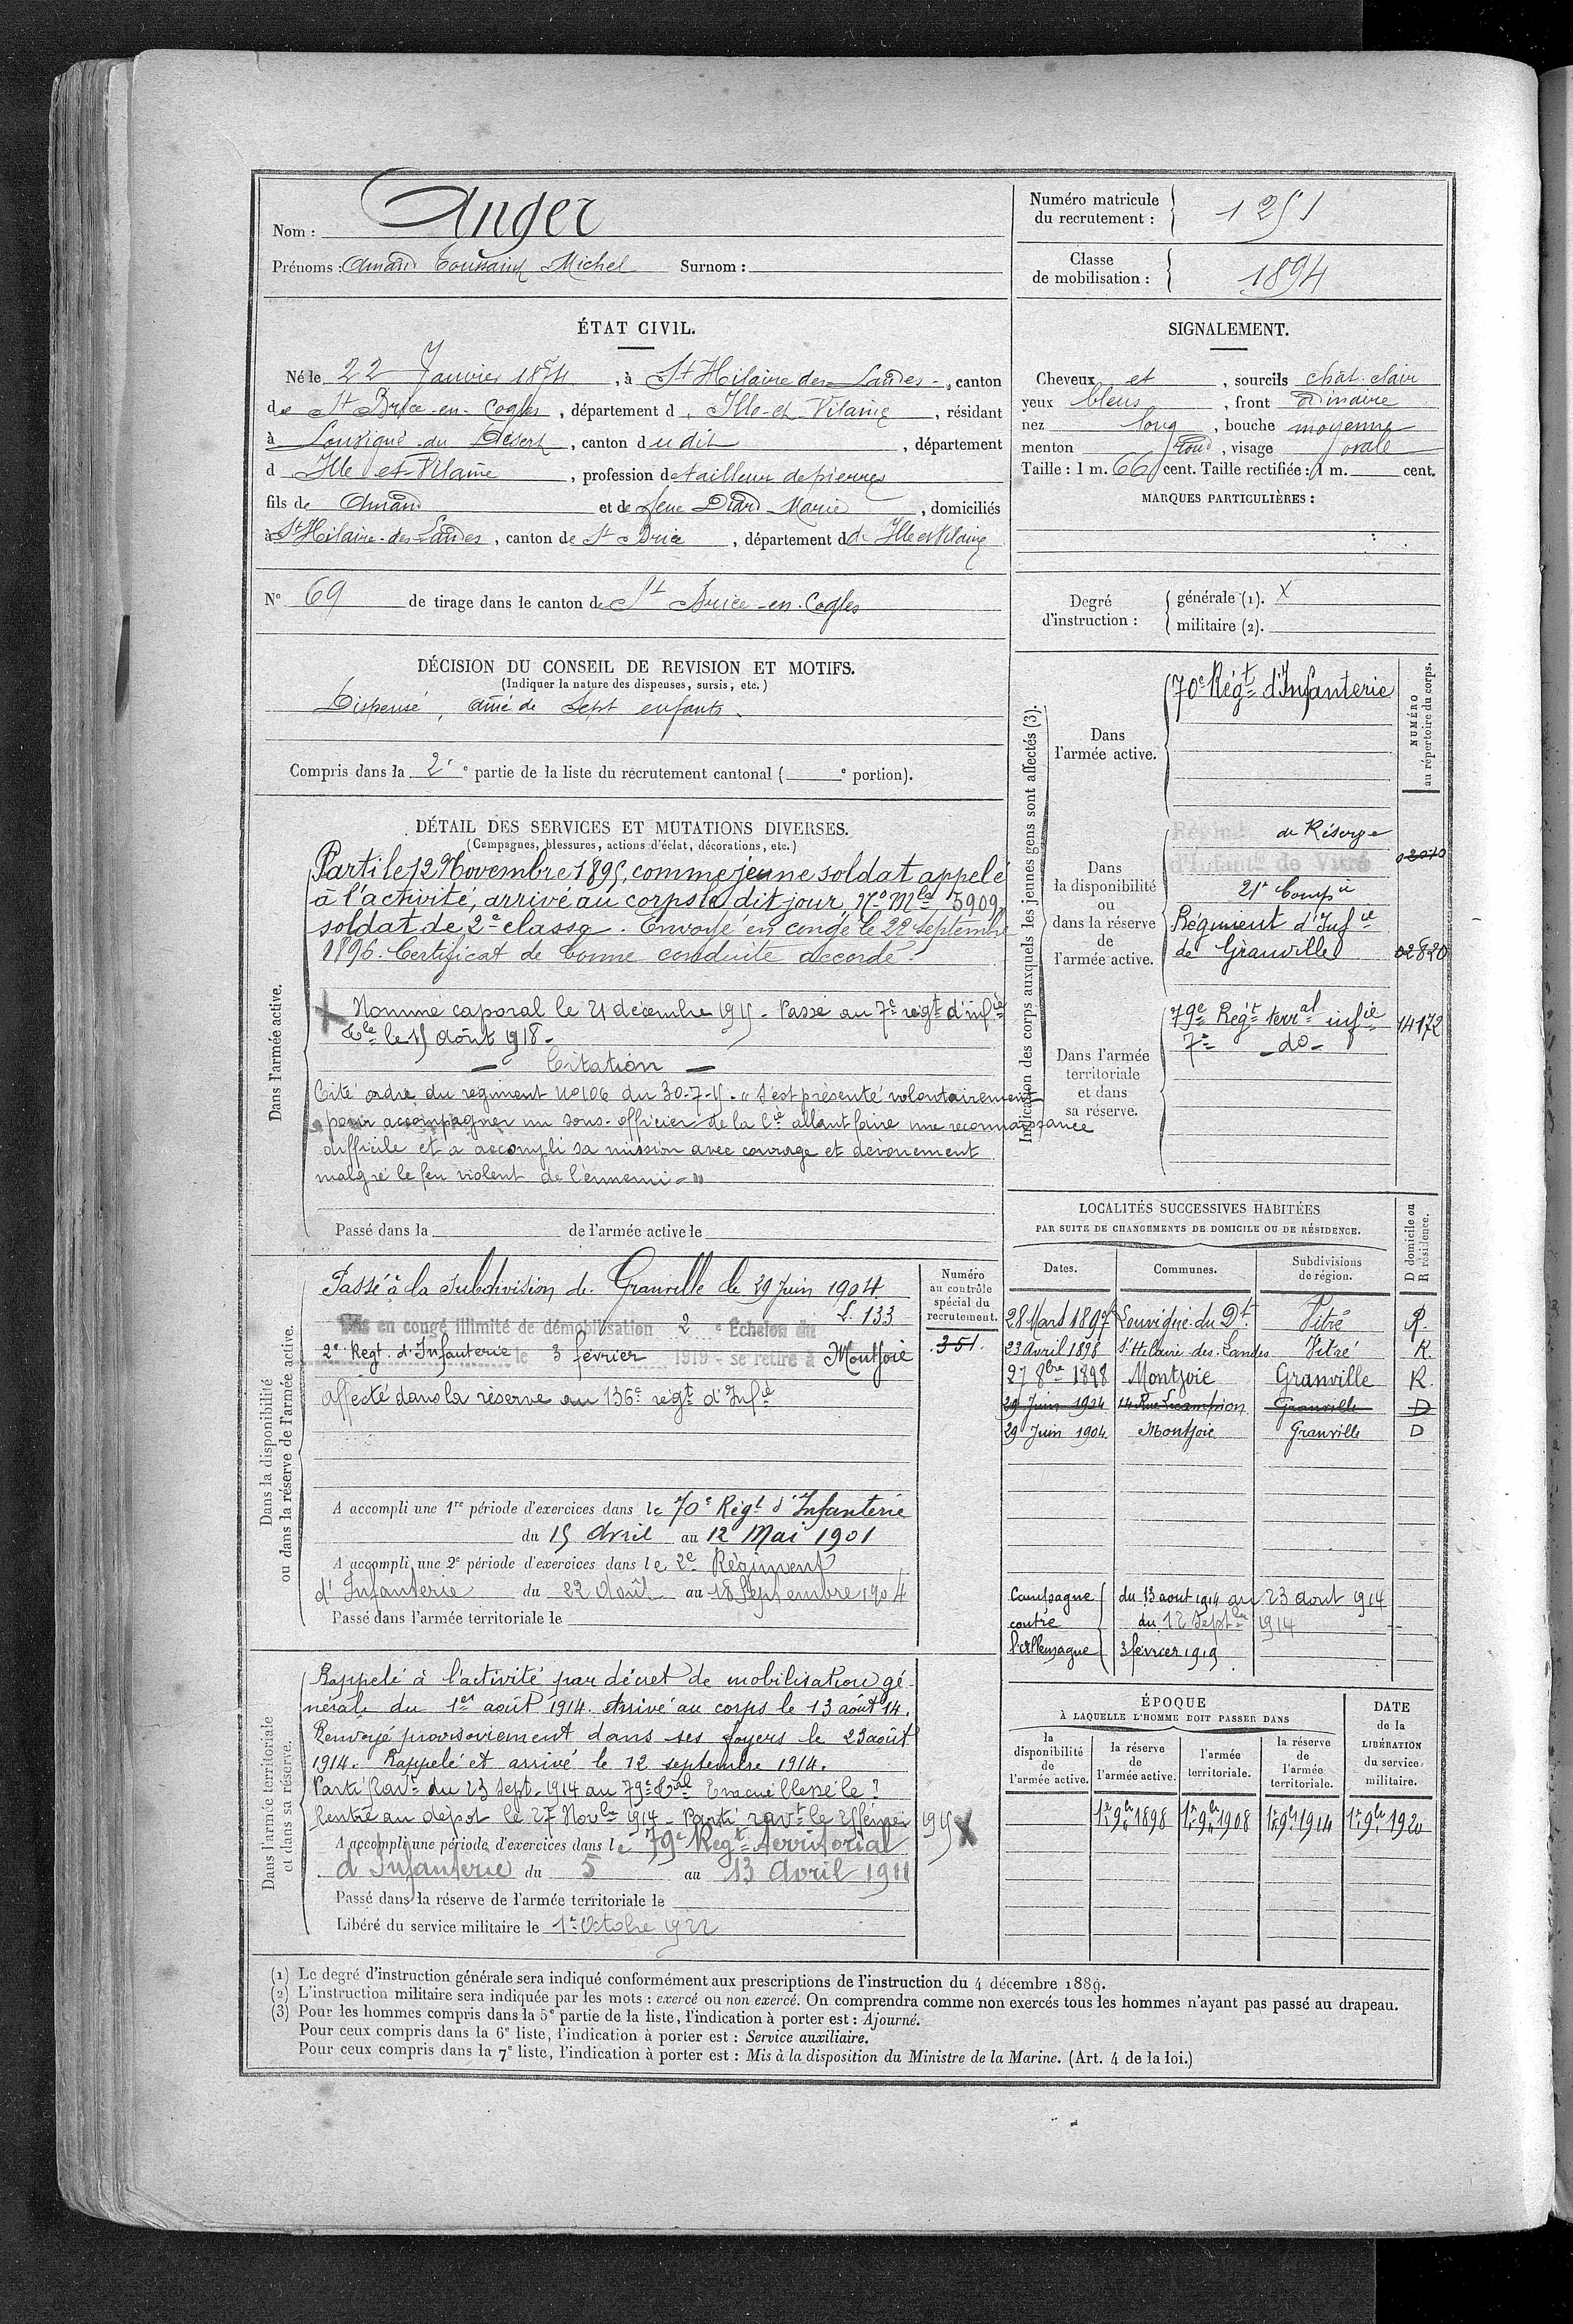 Nom : Anger
Prénoms : Amand Toussaint Michel Surnom :
Numéro matricule du recrutement : 1251
Classe de mobilisation : 1894
ÉTAT CIVIL.
Né le 22 Janvier 1874, à St Hilaire des Landes -, canton
de St Brice-en-Cogles, département d. Ille-et-Vilaine, résidant
à Louvigné-du Désert, canton dudit, département
d Ille et-Vilaine, profession de tailleur de pierres
fils de Amand et de feue Diard Marie, domiciliés
à St Hilaire-des-Landes, canton de St Brice, département d de Ille et Vilaine
N° 69 de tirage dans le canton de St Brice-en-Cogles
DÉCISION DU CONSEIL DE REVISION ET MOTIFS.
(Indiquer la nature des dispenses, sursis, etc.)
Dispensé, ainé de sept enfants.
Compris dans la 2e partie de la liste du recrutement cantonal ( e portion).
SIGNALEMENT.
Cheveux et, sourcils chât. clair
yeux bleus, front ordinaire
nez long, bouche moyenne
menton rond, visage ovale
Taille : 1 m. 66 cent. Taille rectifiée : 1 m. cent.
MARQUES PARTICULIÈRES :
Degré d'instruction :
générale (1). X
militaire (2).
DÉTAIL DES SERVICES ET MUTATIONS DIVERSES.
(Campagnes, blessures, actions d'éclat, décorations, etc.)
Dans l'armée active.
Parti le 12 Novembre 1895, comme jeune soldat appelé
à l'activité, arrivé au corps le dit jour, No Mle 5909,
soldat de 2e classe. Envoyé en congé le 22 septembre
1896. Certificat de bonne conduite accordé.
X Nommé caporal le 21 décembre 1915. Passé au 7e régt d'infie
Tle le 15 août 1918 -
- Citation -
Cité ordre du régiment No 106 du 30-7-15. " S'est présenté volontairement
pour accompagner un sous-officier de la Cie allant faire une reconnaissance
difficile et a accompli sa mission avec courage et dévouement
malgré le feu violent de l'ennemi - "
Passé dans la de l'armée active le
Indication des corps auxquels les jeunes gens sont affectés (3).
NUMÉRO au répertoire du corps.
Dans l'armée active.
70e Régt d'Infanterie
Dans la disponibilité ou dans la réserve de l'armée active.
de Réserve
d'Infantie de Vitré
21e Compie
Régiment d'Infie
de Granville 02820
Dans l'armée territoriale et dans sa réserve.
79e Régt terral infie 14172
7e - do -
LOCALITÉS SUCCESSIVES HABITÉES
PAR SUITE DE CHANGEMENTS DE DOMICILE OU DE RÉSIDENCE.
Dates. Communes. Subdivisions de région. D domicile ou R résidence.
28 Mars 1897 Louvigné du Dt Vitré R.
23 Avril 1898 St Hilaire des Landes Vitré R.
27 8bre 1898 Montjoie Granville R
29 Juin 1904 14 Rue Granville D
29 Juin 1904 Montjoie Granville D
Campagne du 13 aout 1914 au 23 aout 1914
contre du 12 Septbre 1914
l'Allemagne 3 février 1919
Dans la disponibilité ou dans la réserve de l'armée active.
Numéro au contrôle spécial du recrutement.
Passé à la subdivision de Granville le 29 Juin 1904.
L. 133
Mis en congé illimité de démobilisation 2e Échelon du
2e Régt. d'Infanterie le 3 février 1919 - se retire à Montjoie 351.
Affecté dans la réserve au 136e régt d'Infie
A accompli une 1re période d'exercices dans le 70e Régt d'Infanterie
du 15 Avril au 12 Mai 1901
A accompli une 2e période d'exercices dans le 2e Régiment
d'Infanterie du 22 Août au 18 Septembre 1904
Passé dans l'armée territoriale le
Dans l'armée territoriale et dans sa réserve.
Rappelé à l'activité par décret de mobilisation gé-
nérale du 1er août 1914. Arrivé au corps le 13 août 14.
Renvoyé provisoirement dans ses foyers le 23 août
1914. Rappelé et arrivé le 12 septembre 1914.
Parti Ravt du 23 Sept. 1914 au 79e Tal Evacué blessé le ?
Rentré au dépot le 27 Novbre 1914 - Parti ravt le 2 février 1915 X
A accompli une période d'exercices dans le 79e Régt territorial
d'Infanterie du 5 au 13 Avril 1911
Passé dans la réserve de l'armée territoriale le
Libéré du service militaire le 1er Octobre 1922
ÉPOQUE
À LAQUELLE L'HOMME DOIT PASSER DANS
DATE de la LIBÉRATION du service militaire.
la disponibilité de l'armée active. la réserve de l'armée active. l'armée territoriale. la réserve de l'armée territoriale.
1er 9bre 1898 1er 9bre 1908 1er 9bre 1914 1er 9bre 1920
(1) Le degré d'instruction générale sera indiqué conformément aux prescriptions de l'instruction du 4 décembre 1889.
(2) L'instruction militaire sera indiquée par les mots : exercé ou non exercé. On comprendra comme non exercés tous les hommes n'ayant pas passé au drapeau.
(3) Pour les hommes compris dans la 5e partie de la liste, l'indication à porter est : Ajourné.
Pour ceux compris dans la 6e liste, l'indication à porter est : Service auxiliaire.
Pour ceux compris dans la 7e liste, l'indication à porter est : Mis à la disposition du Ministre de la Marine. (Art. 4 de la loi.)